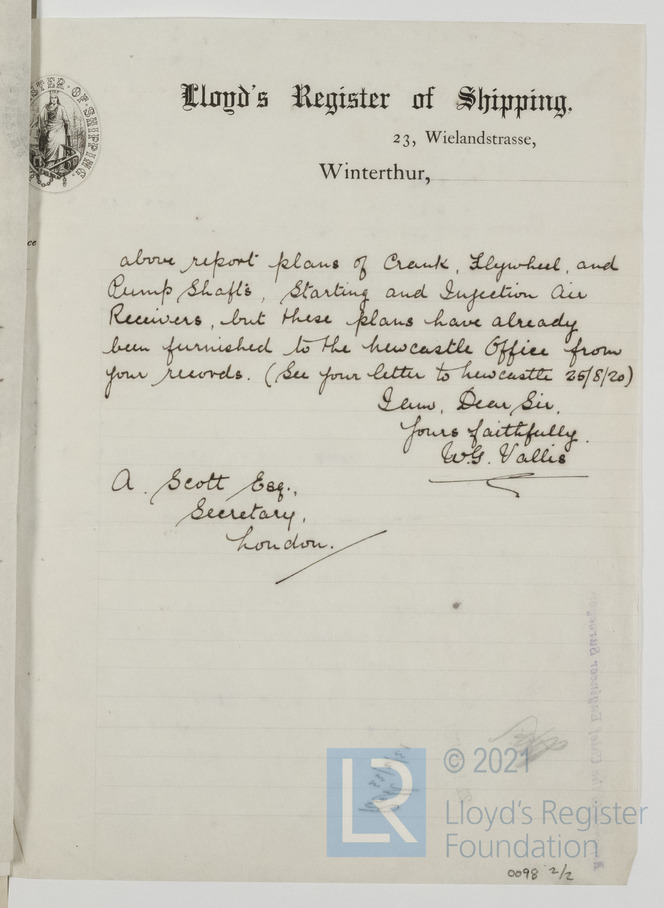 Lloyd's Register of Shipping.
23, Wielandstrasse,
Winterthur,
STER · OF · SHIPPING.
ce
above report plans of Crank, Flywheel, and
Pump Shafts, Starting and Injection Air
Receivers, but these plans have already
been furnished to the Newcastle Office from
your records. (See your letter to Newcastle 25/8/20)
I am, Dear Sir,
Yours faithfully.
W.G. Vallis
A. Scott Esq.,
Secretary,
London.
© 2021
LR
Lloyd's Register
Foundation
0098 2/2